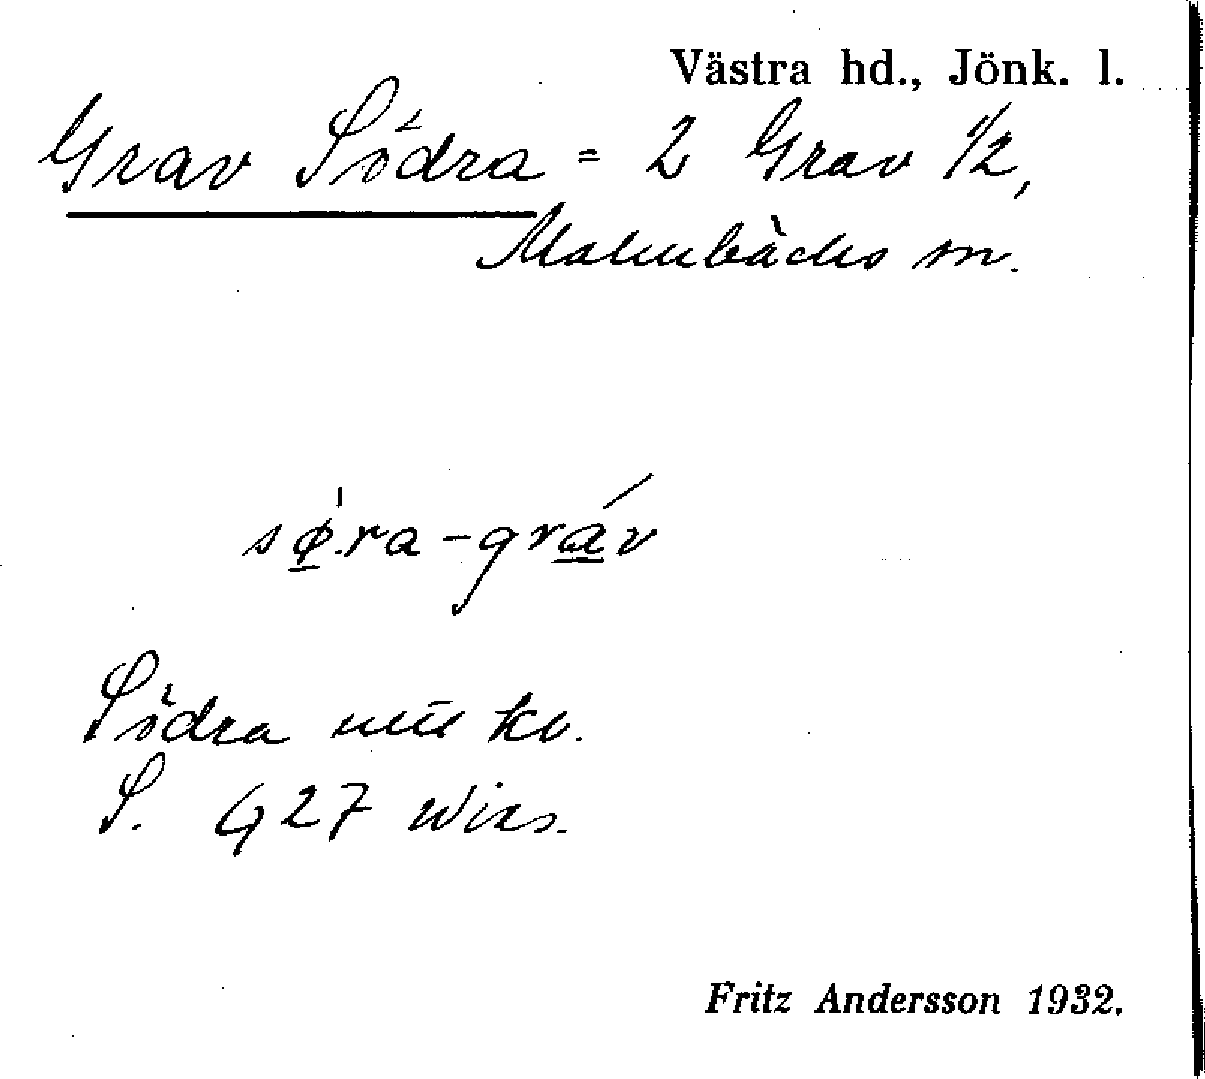 Västra hd., Jönk. l.
Grav Södra = 2 Grav 1/2,
Malmbäcks sn.
sø̱.ra-grá̱v
Södra kv.
S. 27
Fritz Andersson 1932.